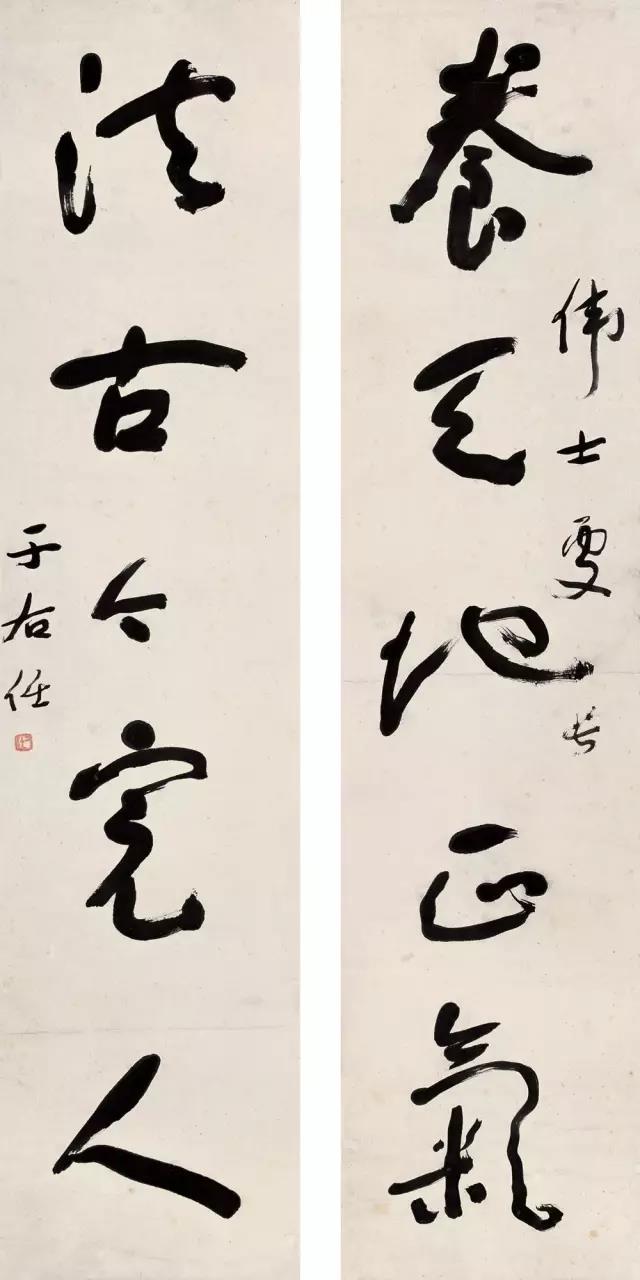 養天地正氣
偉士吏長
法古今完人
于右任